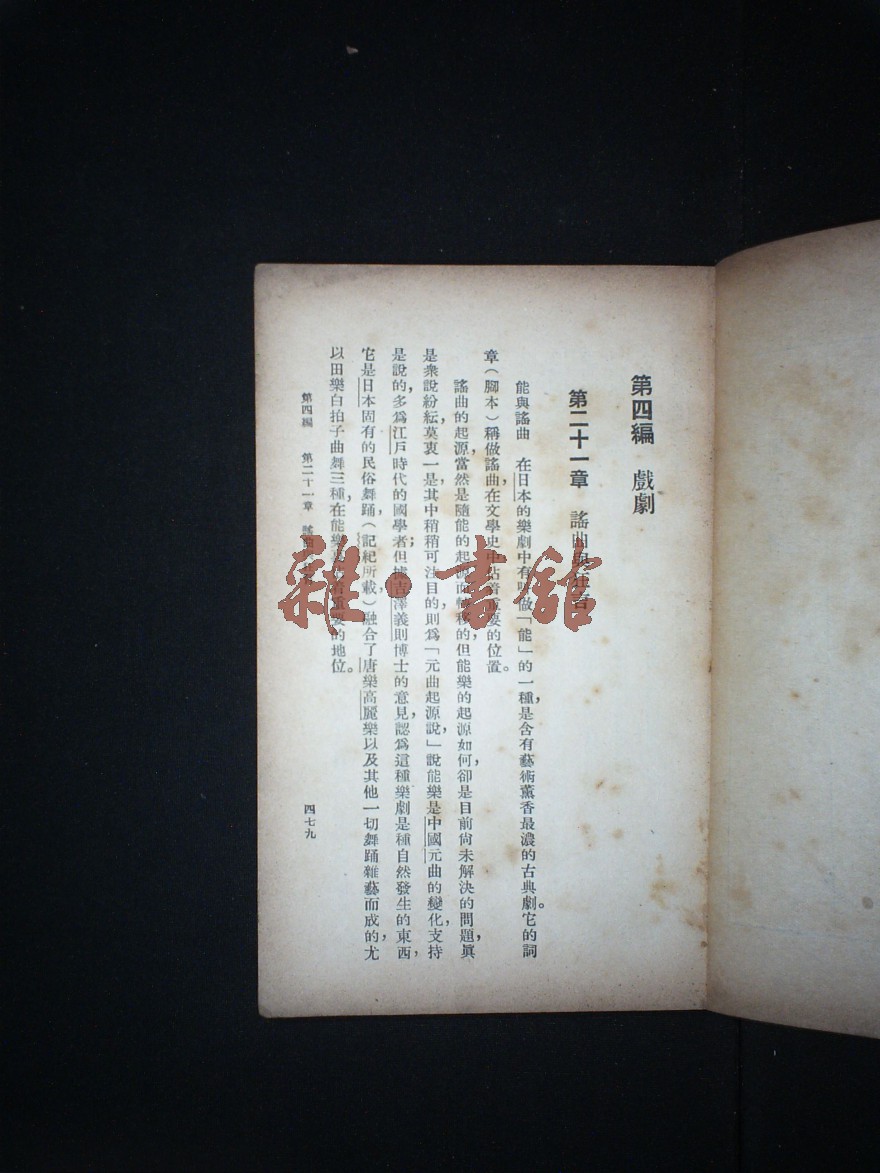 第四編 戲劇
第二十一章 謠曲與狂言
能與謠曲 在日本的樂劇中有叫做「能」的一種,是含有藝術薰香最濃的古典劇。它的詞
章(腳本)稱做謠曲,在文學史中佔着重要的位置。
謠曲的起源,當然是隨能的起源而轉移的,但能樂的起源如何,卻是目前尚未解決的問題,眞
是衆說紛紜,莫衷一是。其中稍稍可注目的,則爲「元曲起源說」,說能樂是中國元曲的變化,支持
是說的,多爲江戶時代的國學者;但據吉澤義則博士的意見,認爲這種樂劇是種自然發生的東西,
它是日本固有的民俗舞踊(記紀所載)融合了唐樂、高麗樂以及其他一切舞踊雜藝而成的,尤
以田樂白拍子曲舞三種,在能樂
重要的地位。
第四編 第二十一章 謠曲
四七九
雜・書館